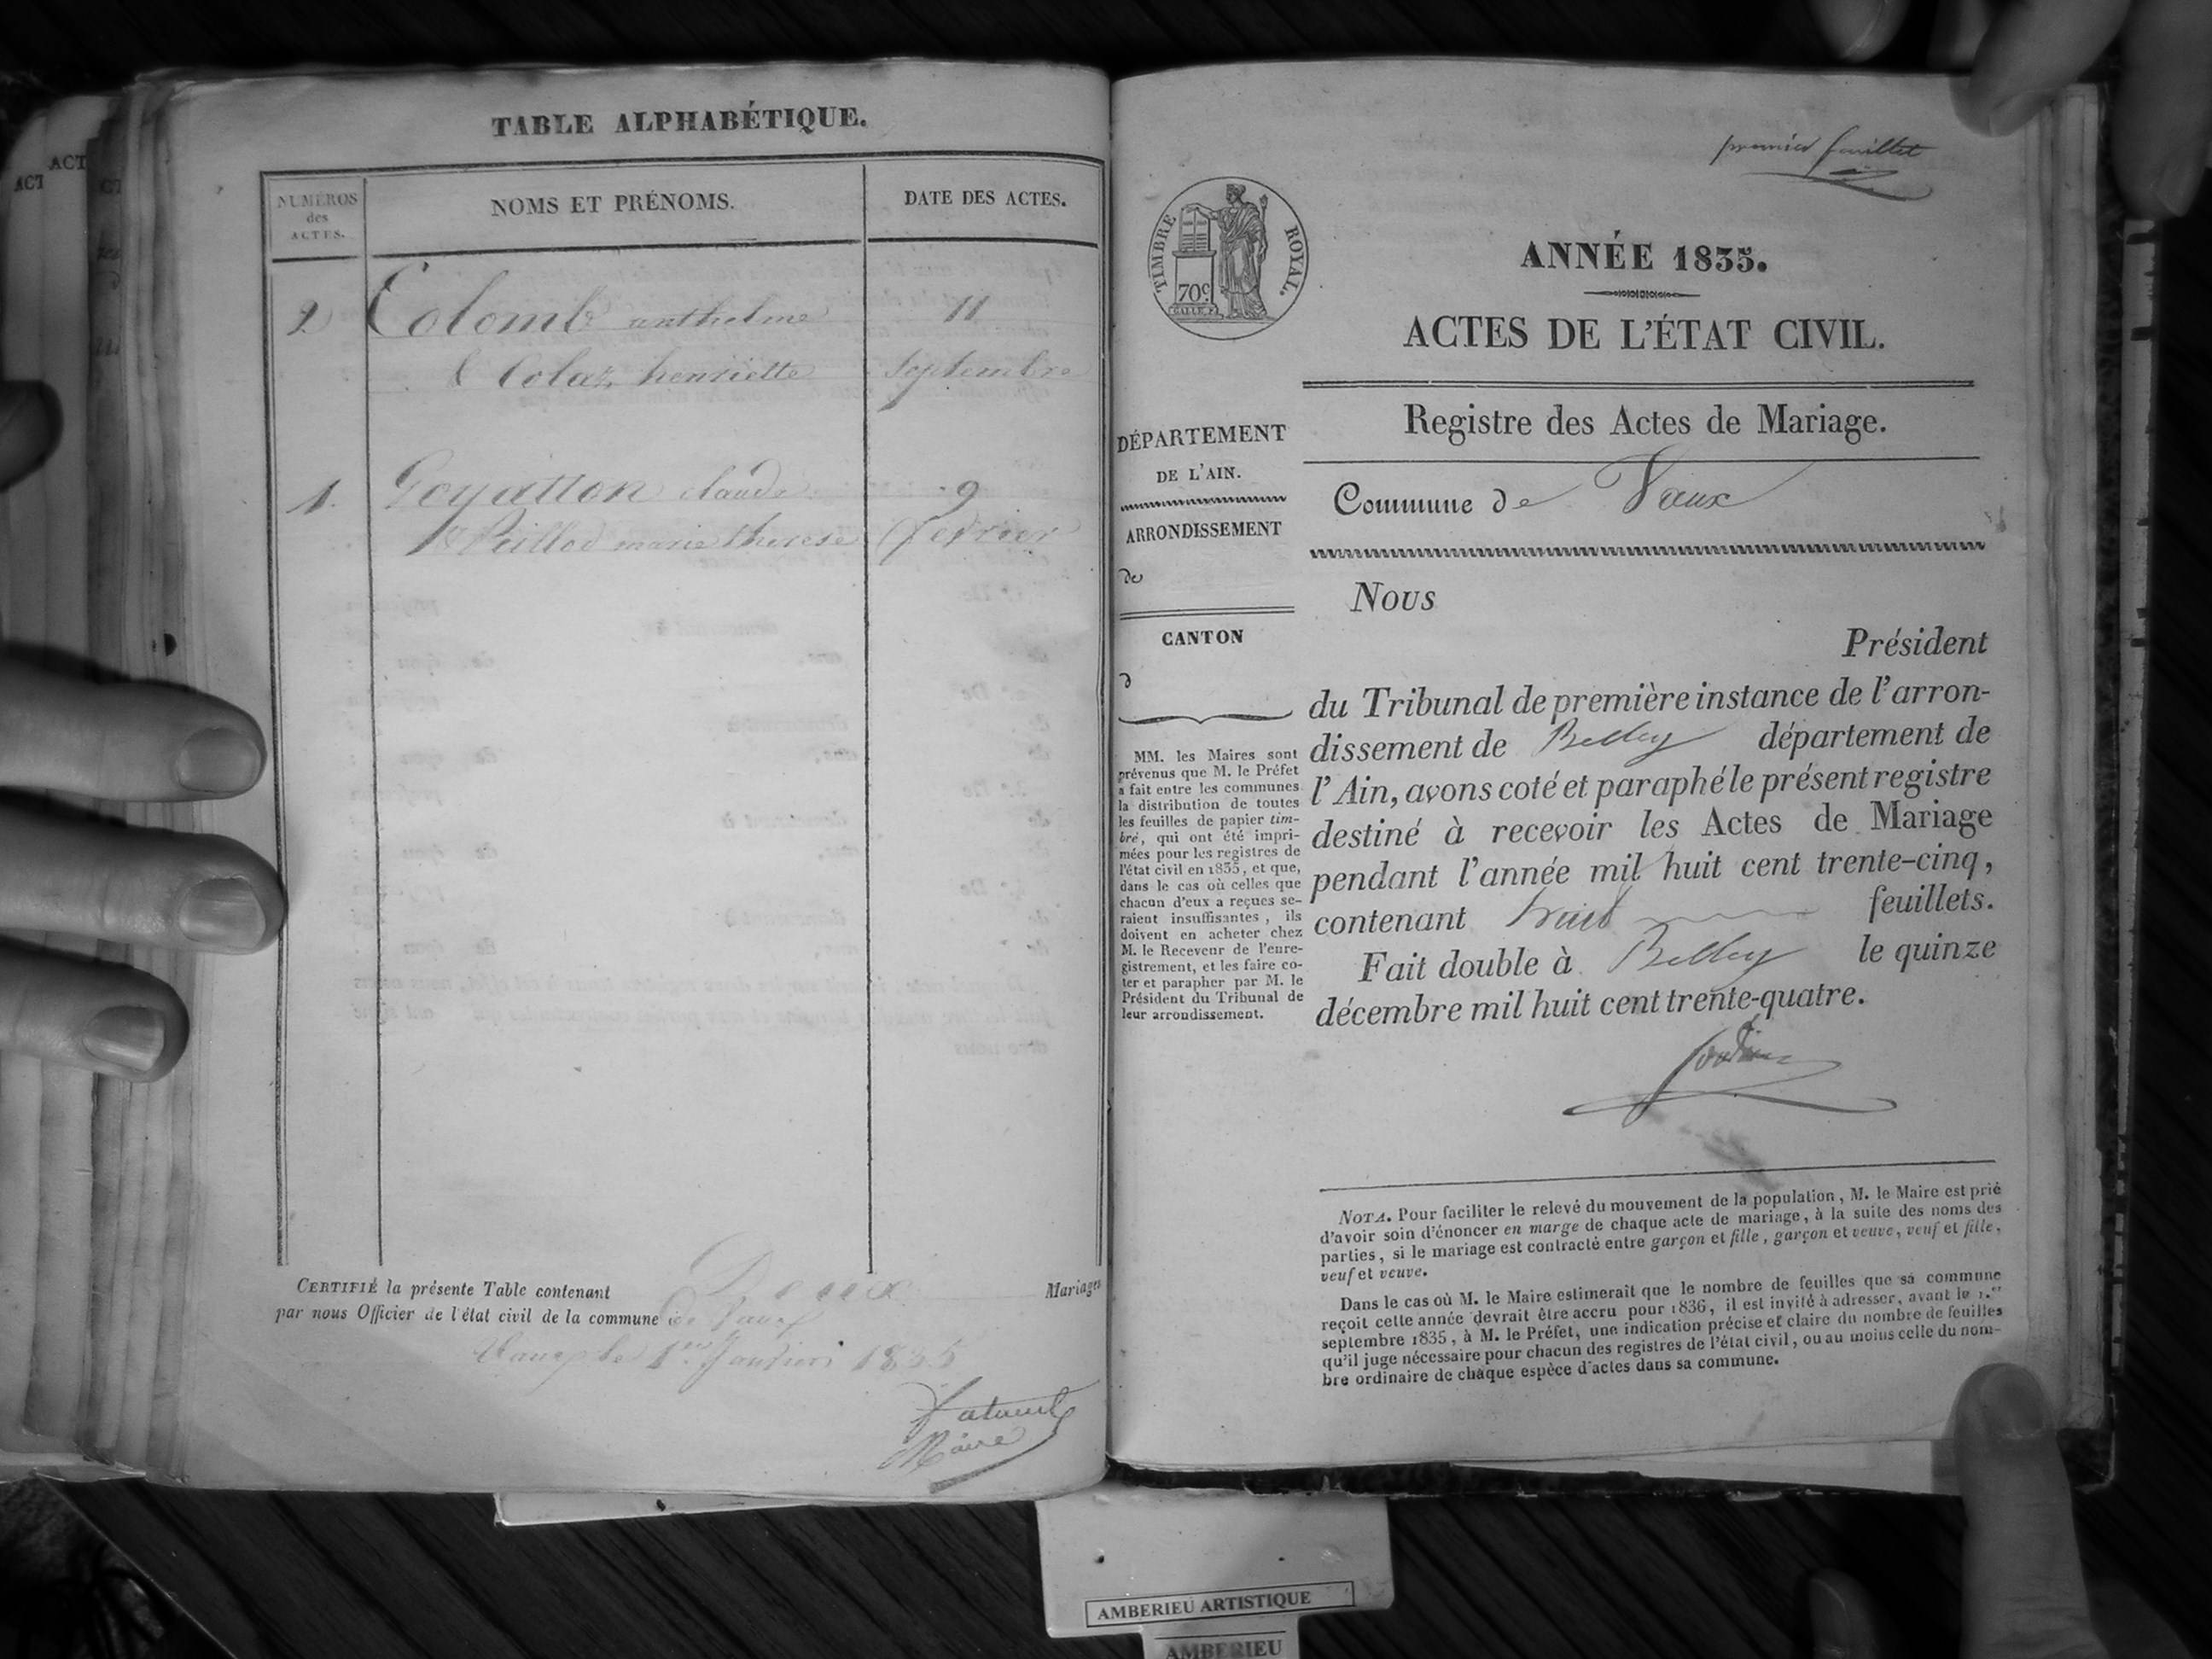 ACT
ACT
TABLE ALPHABÉTIQUE.
NUMÉROS
des
ACTES.
NOMS ET PRÉNOMS.
DATE DES ACTES.
2 Colomb anthelme 11
& Colaz henriette Septembre
1. Goyatton claude 9
& Peillod marie therese fevrier
CERTIFIÉ la présente Table contenant Deux Mariages
par nous Officier de l'état civil de la commune de Vaux
Vaux le 1er Janvier 1835
Maire
premier feuillet
TIMBRE ROYAL.
70c
ANNÉE 1835.
ACTES DE L'ÉTAT CIVIL.
Registre des Actes de Mariage.
Commune de Vaux
DÉPARTEMENT
DE L'AIN.
ARRONDISSEMENT
de
CANTON
d
MM. les Maires sont
prévenus que M. le Préfet
a fait entre les communes
la distribution de toutes
les feuilles de papier tim-
bré, qui ont été impri-
mées pour les registres de
l'état civil en 1835, et que,
dans le cas où celles que
chacun d'eux a reçues se-
raient insuffisantes, ils
doivent en acheter chez
M. le Receveur de l'enre-
gistrement, et les faire co-
ter et parapher par M. le
Président du Tribunal de
leur arrondissement.
Nous
Président
du Tribunal de première instance de l'arron-
dissement de Belley département de
l'Ain, avons coté et paraphé le présent registre
destiné à recevoir les Actes de Mariage
pendant l'année mil huit cent trente-cinq,
contenant huit feuillets.
Fait double à Belley le quinze
décembre mil huit cent trente-quatre.
NOTA. Pour faciliter le relevé du mouvement de la population, M. le Maire est prié
d'avoir soin d'énoncer en marge de chaque acte de mariage, à la suite des noms des
parties, si le mariage est contracté entre garçon et fille, garçon et veuve, veuf et fille,
veuf et veuve.
Dans le cas où M. le Maire estimerait que le nombre de feuilles que sa commune
reçoit cette année devrait être accru pour 1836, il est invité à adresser, avant le 1.er
septembre 1835, à M. le Préfet, une indication précise et claire du nombre de feuilles
qu'il juge nécessaire pour chacun des registres de l'état civil, ou au moins celle du nom-
bre ordinaire de chaque espèce d'actes dans sa commune.
AMBERIEU ARTISTIQUE
AMBERIEU